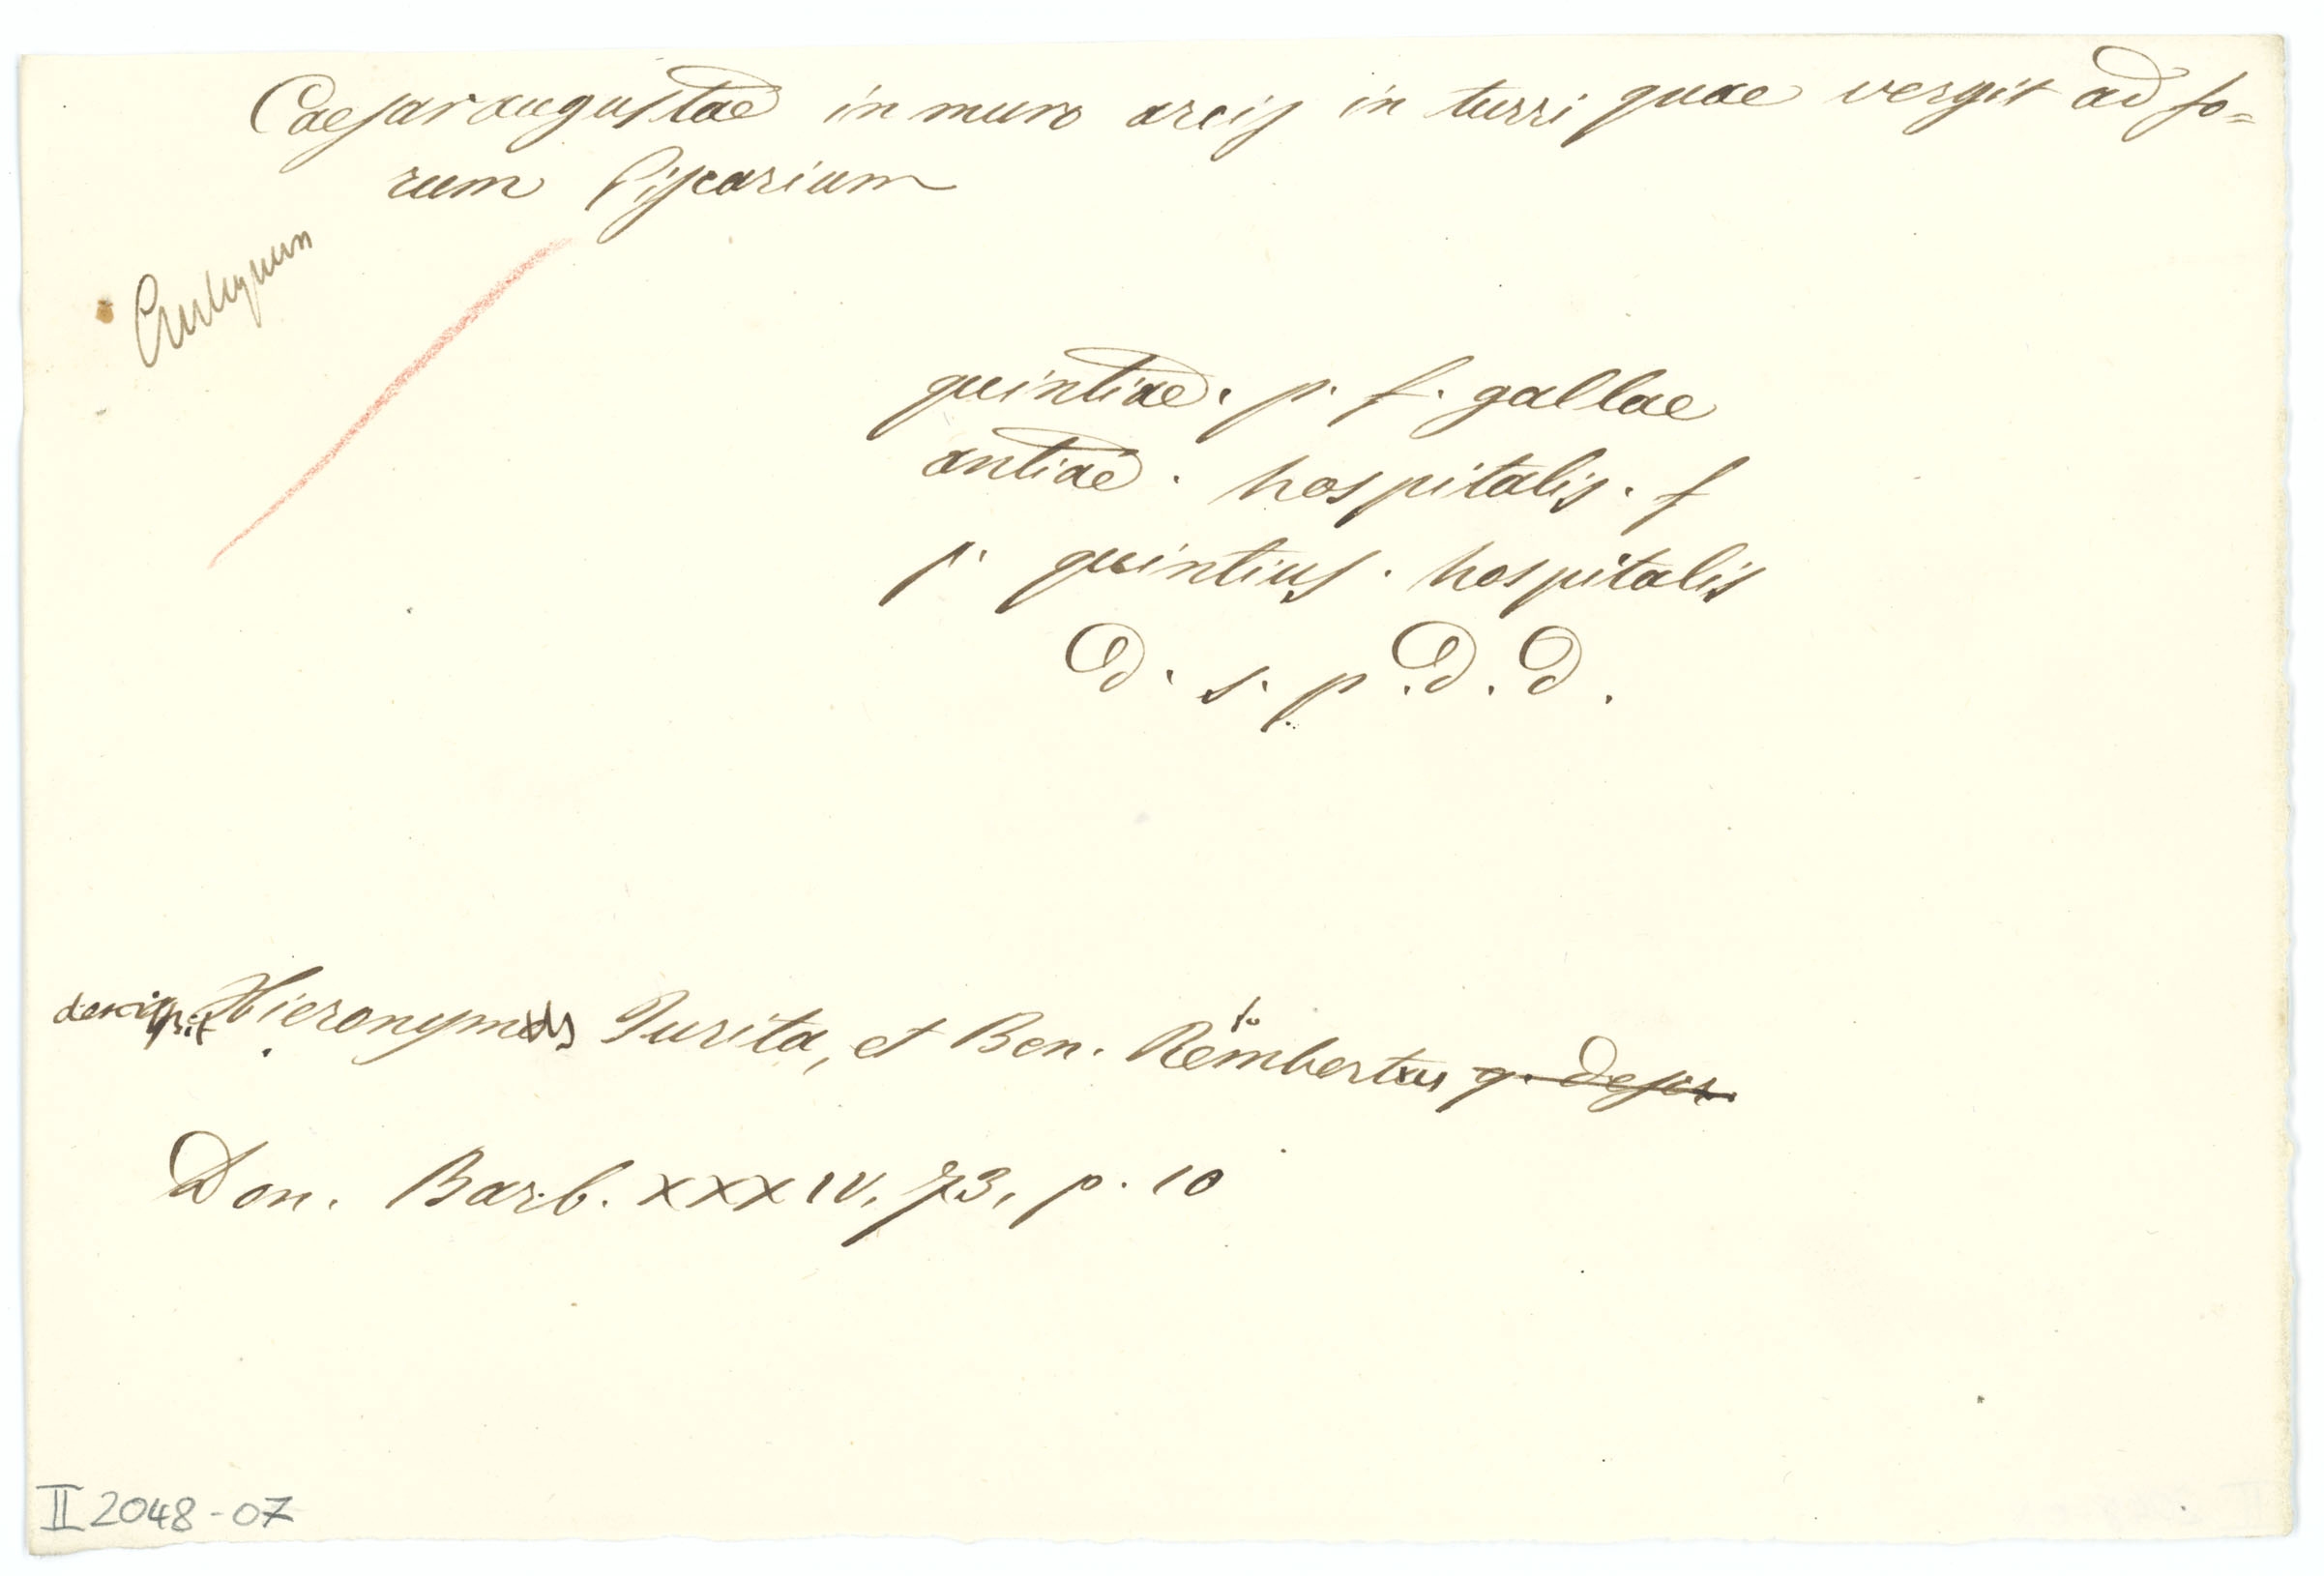 Caesaraugustae in muro arcis in turri quae vergit ad fo=
rum Piscarium
quintiae. p. f. gallae
antiae. hospitalis. f
p. quintius. hospitalis
D. s. p. D. D.
descripsit Hieronymus Surita, et Ben. Rembertus
Don. Barb. XXXIV, 73, p. 10
II 2048-07